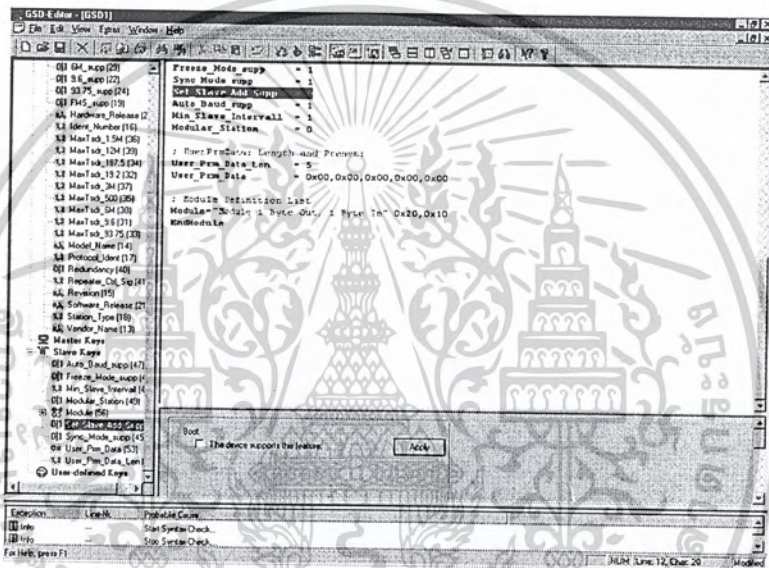 GSD-Editor - [GSD1]
File Edit View Extras Window Help
0|1 6M_supp (29)
0|1 9.6_supp (22)
0|1 93.75_supp (24)
0|1 FMS_supp (19)
Hardware_Release (2
Ident_Number (16)
MaxTsdr_1.5M (36)
MaxTsdr_12M (39)
MaxTsdr_187.5 (34)
MaxTsdr_19.2 (32)
MaxTsdr_3M (37)
MaxTsdr_500 (35)
MaxTsdr_6M (38)
MaxTsdr_9.6 (31)
MaxTsdr_93.75 (33)
Model_Name (14)
Protocol_Ident (17)
0|1 Redundancy (40)
Repeater_Ctrl_Sig (41
Revision (15)
Software_Release (21
Station_Type (18)
Vendor_Name (13)
Master Keys
Slave Keys
0|1 Auto_Baud_supp (47)
0|1 Freeze_Mode_supp (4
Min_Slave_Intervall (4
0|1 Modular_Station (49)
Module (56)
0|1 Set_Slave_Add_Supp
0|1 Sync_Mode_supp (45
User_Prm_Data (53)
User_Prm_Data_Len (
User-defined Keys
Freeze_Mode_supp = 1
Sync_Mode_supp = 1
Set_Slave_Add_Supp
Auto_Baud_supp = 1
Min_Slave_Intervall = 1
Modular_Station = 0
; UserPrmData: Length and Preset:
User_Prm_Data_Len = 5
User_Prm_Data = 0x00,0x00,0x00,0x00,0x00
; Module Definition List
Module="Module 1 Byte Out, 1 Byte In" 0x20,0x10
EndModule
Bool
The device supports this feature.
Apply
Exception Line-Nr. Probable Cause
Info --- Start Syntax Check...
Info --- Stop Syntax Check...
For Help, press F1
NUM Line: 12, Char: 20 Modified